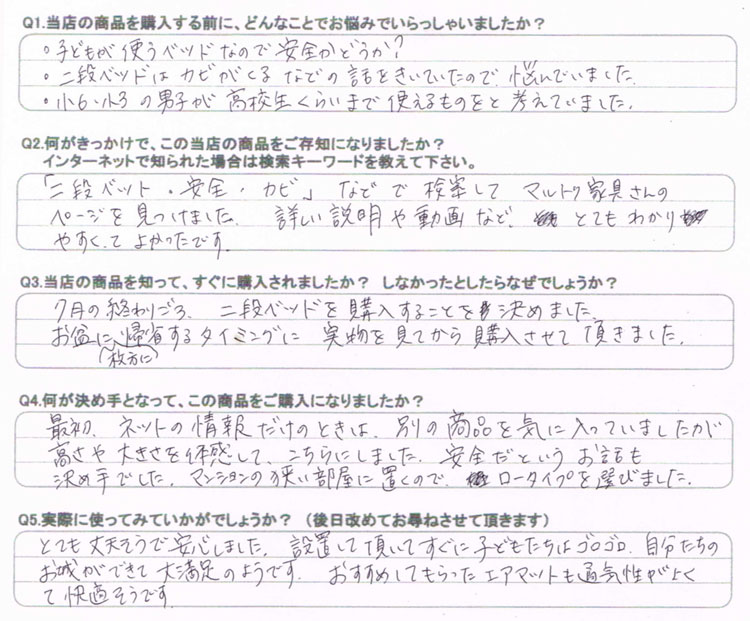 Q1.当店の商品を購入する前に、どんなことでお悩みでいらっしゃいましたか？
・子どもが使うベッドなので安全かどうか？
・二段ベッドはカビがくるなどの話をきいていたので、悩んでいました。
・小6・小3の男子が高校生くらいまで使えるものをと考えていました。
Q2.何がきっかけで、この当店の商品をご存知になりましたか？
インターネットで知られた場合は検索キーワードを教えて下さい。
「二段ベット・安全・カビ」などで検索してマルトク家具さんの
ページを見つけました。詳しい説明や動画など、とてもわかり
やすくてよかったです。
Q3.当店の商品を知って、すぐに購入されましたか？ しなかったとしたらなぜでしょうか？
7月の終わりごろ、二段ベッドを購入することを決めました。
お盆に、帰省するタイミングに実物を見てから購入させて頂きました。
(枚方に)
Q4.何が決め手となって、この商品をご購入になりましたか？
最初、ネットの情報だけのときは、別の商品を気に入っていましたが
高さや大きさを体感して、こちらにしました。安全だというお話も
決め手でした。マンションの狭い部屋に置くので、ロータイプを選びました。
Q5.実際に使ってみていかがでしょうか？ （後日改めてお尋ねさせて頂きます）
とても丈夫そうで安心しました。設置して頂いてすぐに子どもたちはゴロゴロ。自分たちの
お城ができて大満足のようです。おすすめしてもらったエアマットも通気性がよく
て快適そうです。